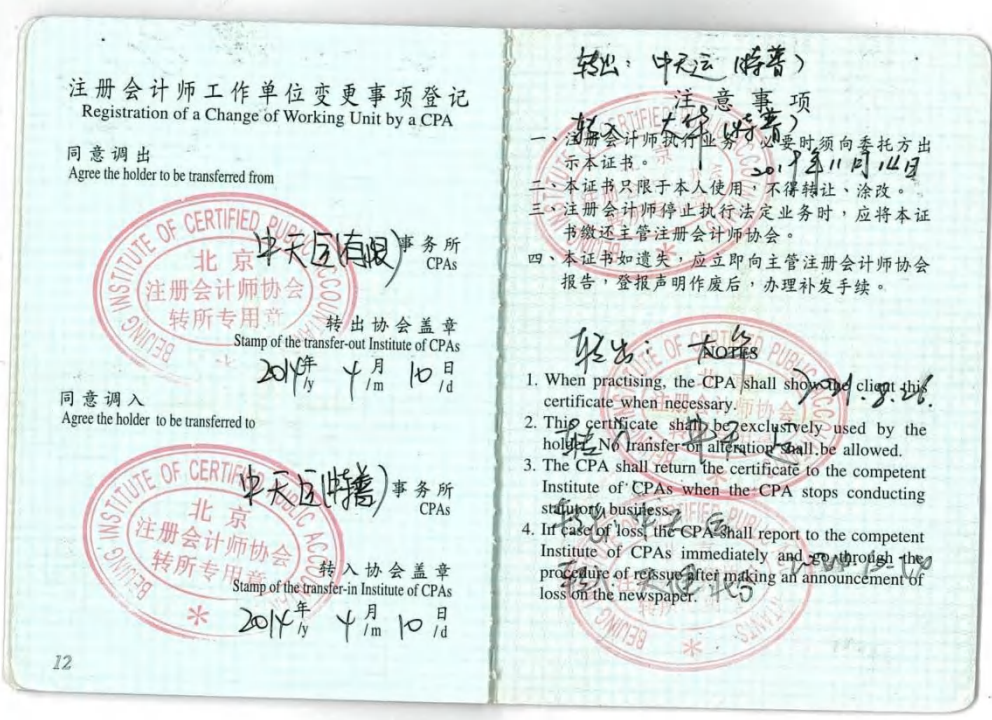 注册会计师工作单位变更事项登记
Registration of a Change of Working Unit by a CPA
同意调出
Agree the holder to be transferred from
中天运(有限) 事务所
CPAs
BEIJING INSTITUTE OF CERTIFIED PUBLIC ACCOUNTANTS
北京
注册会计师协会
转所专用章
转出协会盖章
Stamp of the transfer-out Institute of CPAs
2014年 4月 10日
/y /m /d
同意调入
Agree the holder to be transferred to
中天运(特普) 事务所
CPAs
BEIJING INSTITUTE OF CERTIFIED PUBLIC ACCOUNTANTS
北京
注册会计师协会
转所专用章
转入协会盖章
Stamp of the transfer-in Institute of CPAs
2014年 4月 10日
/y /m /d
12
转出：中天运(特普)
注意事项
转入 大华(特普)
一、注册会计师执行业务，必要时须向委托方出
示本证书。
2019年11月14日
二、本证书只限于本人使用，不得转让、涂改。
三、注册会计师停止执行法定业务时，应将本证
书缴还主管注册会计师协会。
四、本证书如遗失，应立即向主管注册会计师协会
报告，登报声明作废后，办理补发手续。
转出：大华
NOTES
1. When practising, the CPA shall show the client this
certificate when necessary.
2021.8.26.
2. This certificate shall be exclusively used by the
holder. No transfer or alteration shall be allowed.
转入：中天运
3. The CPA shall return the certificate to the competent
Institute of CPAs when the CPA stops conducting
statutory business.
转出
4. In case of loss, the CPA shall report to the competent
Institute of CPAs immediately and go through the
procedure of reissue after making an announcement of
loss on the newspaper.
转入